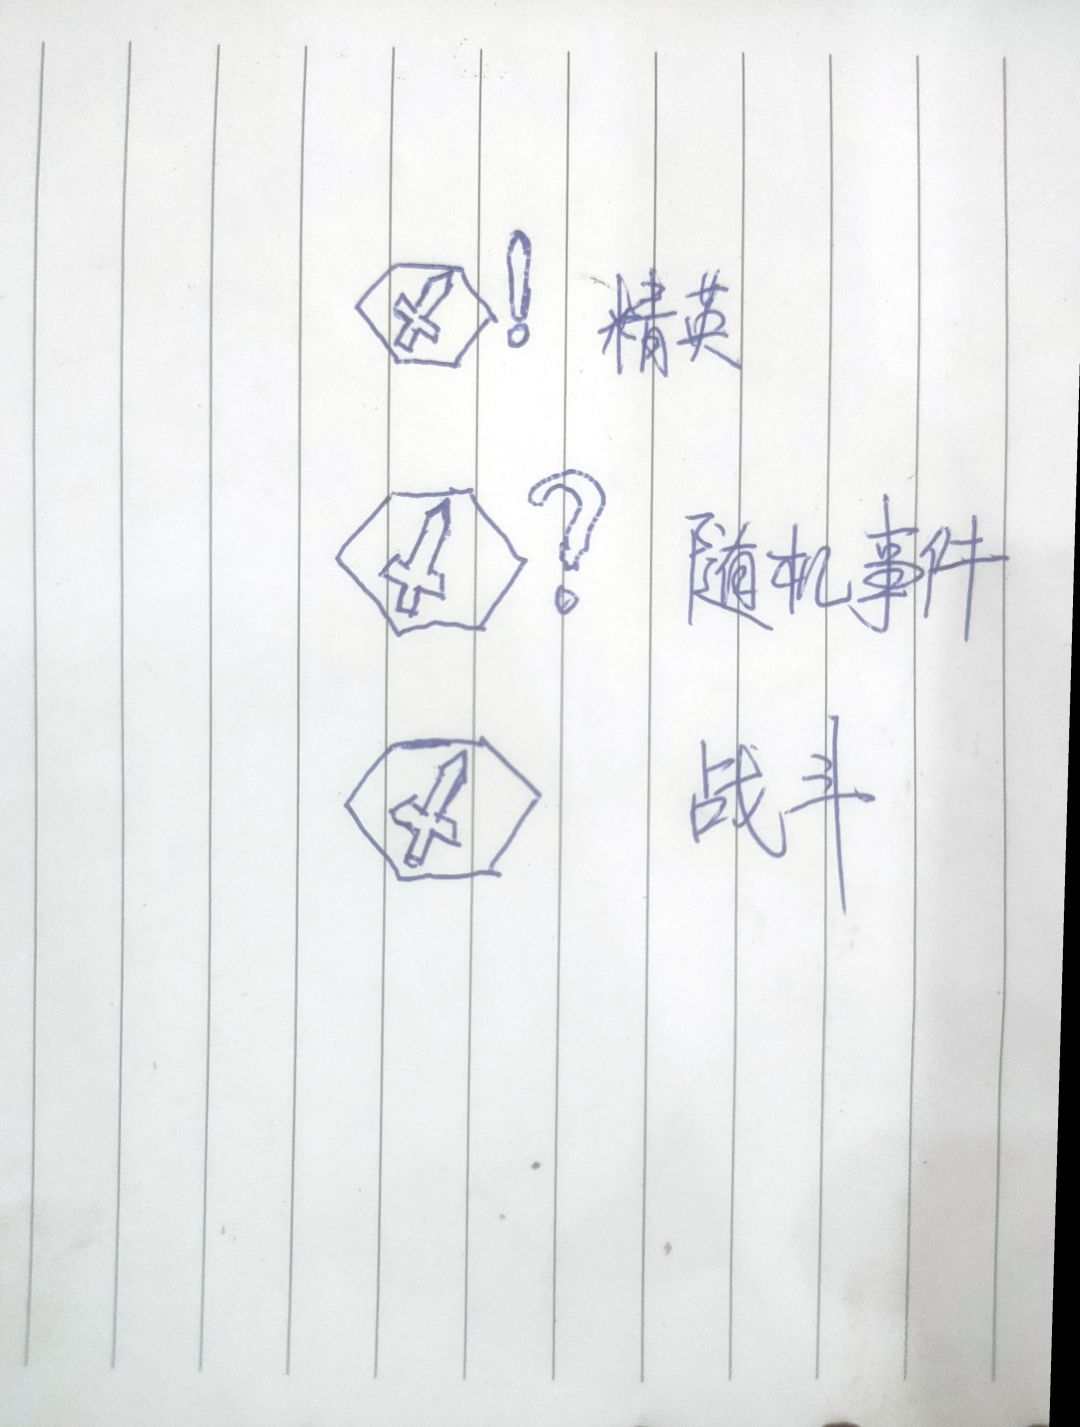 ! 精英
? 随机事件
战斗